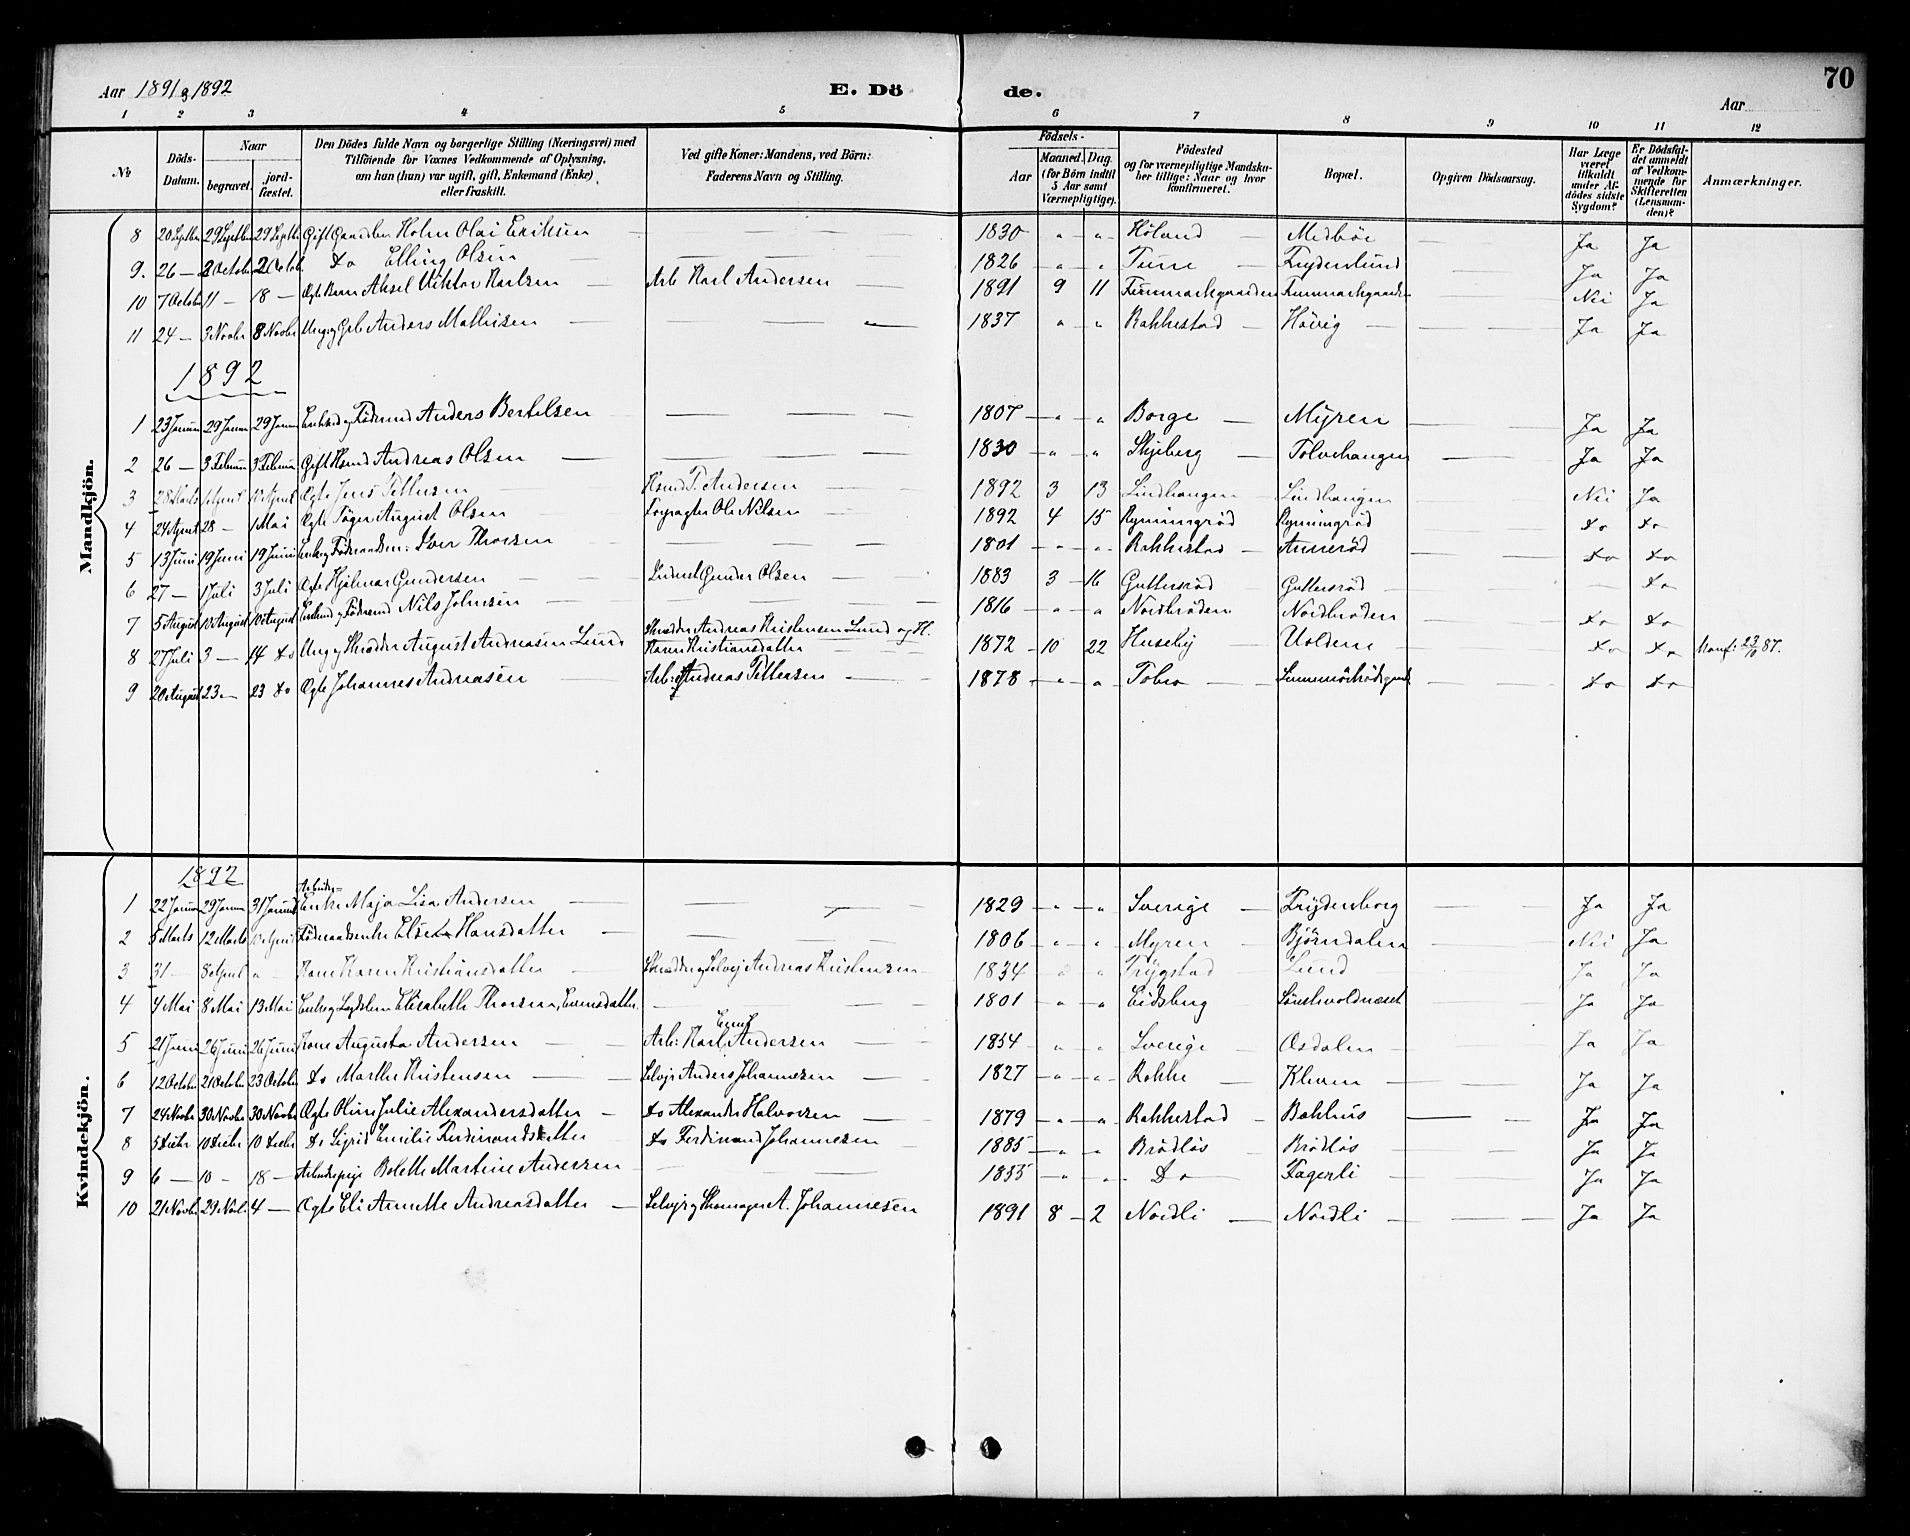 Aar 1891 & 1892 E. Dö de. 70
Aar
1 2 3 4 5 6 7 8 9 10 11 12
No
Döds-Datum.
Naar
begravet.
jord-fæstet.
Den Dödes fulde Navn og borgerlige Stilling (Næringsvei) med
Tilföiende for Voxnes Vedkommende af Oplysning,
om han (hun) var ugift, gift, Enkemand (Enke)
eller fraskilt.
Ved gifte Koner: Mandens, ved Börn:
Faderens Navn og Stilling.
Födsels-
Aar
Maaned. Dag.
(for Börn indtil
5 Aar samt
Værnepligtige).
Födested
og for værnepligtige Mandska-
ber tillige: Naar og hvor
konfirmeret.
Bopæl.
Opgiven Dödsaarsag.
Har Læge
været
tilkaldt
under Af-
dödes sidste
Sygdom?
Er Dödsfal-
det anmeldt
af Vedkom-
mende for
Skifteretten
(Lensman-
den)?
Anmærkninger.
Mandkjön.
8 20 Septbr 29 Septbr 29 Septbr Gift Gaardbr Holm Olai Eriksen — 1830 " " Höland — Medböe — Ja Ja
9. 26 — 2 Octob 2 Octob do Elling Olsen — 1826 " " Tune — Frydenlund — Ja Ja
10 7 Octob 11 — 18 — Ægte Barn Aksel Viktor Karlsen — Arb Karl Andersen — 1891 9 11 Finmarkgaarden Finmarkgaarden Nei Ja
11 24 — 3 Novbr 8 Novbr Ung. Anders Mathisen — 1837 " " Rakkestad — Hövig — Ja Ja
1892
1 23 Januar 29 Januar 29 Januar Enkemd og Föderaad Anders Bertelsen — 1807 " " Borge — Myren — Ja Ja
2 26 — 3 Februar 3 Februar Gift Husmd Andreas Olsen — 1830 " " Skjeberg — Tolvehaugen — Ja Ja
3 28 Marts 1 April 10 April Ægte Jens Pettersen — Husmd P. Andersen — 1892 3 13 Lindhaugen — Lindhaugen — Nei Ja
4 24 April 28 — 1 Mai Ægte Töger August Olsen — Forpagter Ole Nilsen — 1892 4 15 Rynningröd Rynningröd do do
5 13 Juni 19 Juni 19 Juni Enkeog Föderaadsm. Iver Thorsen — 1801 " " Rakkestad — Anneröd — do do
6 27 — 1 Juli 3 Juli Ægte Hjalmar Gundersen — Gunder Olsen — 1883 3 16 Guttersröd Guttersröd — do
7 5 August 10 August 10 August Enkemd og Föderaad Nils Johnsen — 1816 " " Nordbröden Nordbröden — do do
8 27 Juli 3 — 14 do Ung. Skrædder August Andreasen Lund Skrædder Andreas Kristensen Lund og H.
Karen Kristiansdatter — 1872 10 22 Huseby Volden — do do Konf: 23/10 87.
9 20 August 23 — 23 do Ægte Johannes Andreasen — Arb: Andreas Pettersen — 1878 " " Tobro — do do
Kvindekjön.
1892
Arbeider-
1 22 Januar 29 Januar 31 Januar Enke Maja Lisa Andersen — 1829 " " Sverige — Frydenborg — Ja Ja
2 5 Marts 12 Marts 10 April Föderaadsenke Else Hansdatter — 1806 " " Myren — Björndalen — Nei Ja
3 31 — 8 April " Kone Karen Kristiansdatter — Skrædder og Selvej Andreas Kristensen 1834 " " Trygstad — Lund — Ja Ja
4 4 Mai 8 Mai 13 Mai Enke og Lægdslem Elisabeth Thorsen, Evensdatter. — 1801 " " Eidsberg Ja Ja
5 21 Juni 26 Juni 26 Juni Kone Augusta Andersen — Arb: Karl Emil Andersen — 1854 " " Sverige — Æsdalen — Ja Ja
6 12 Octobr 21 Octobr 23 Octobr do Marthe Kristensen — Selvejr Anders Johannesen — 1827 " " Rokke — Kleven — Ja Ja
7 24 Novbr 30 Novbr 30 Novbr Ægte Oline Julie Alexandersdatter — do Alexander Halvorsen — 1879 " " Rakkestad — Bakhus — Ja Ja
8 5 Decbr 10 Decbr 10 Decbr do Sigrid Emilie Ferdinandsdatter — do Ferdinand Johannesen 1885 " " Brödlös — Brödlös — Ja Ja
9 6 — 10 — 18 — Arbeiderpige Bolette Martine Andersen — 1855 " " Do — Fagerli — Ja Ja
10 21 Novbr 29 Novbr 4 — Ægte Eli Annette Andreasdatter — Selvejr og Skomager A. Johannesen 1891 8 2 Nordli — Nordli — Ja Ja